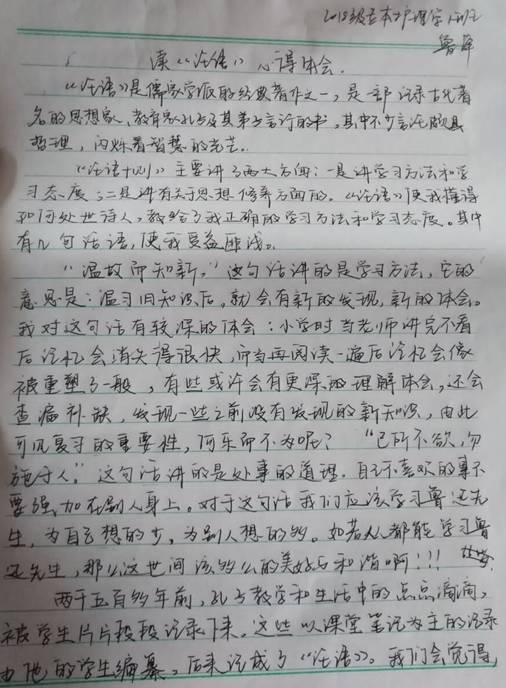 2018级专本护理学1班
鲁萍
读《论语》心得体会.
《论语》是儒家学派的经典著作之一,是一部记录古代著
名的思想家、教育家孔子及其弟子言行的书,其中不少言论颇具
哲理,闪烁着智慧的光芒。
《论语十则》主要讲了两大方面:一是讲学习方法和学
习态度;二是讲有关于思想修养方面的。《论语》使我懂得
如何处世待人,教给了我正确的学习方法和学习态度。其中
有几句话语,使我受益匪浅。
"温故而知新。"这句话讲的是学习方法,它的
意思是:温习旧知识后,就会有新的发现,新的体会。
我对这句话有较深的体会:小学时当老师讲完不看
后记忆会消失得很快,而当再阅读一遍后记忆会像
被重塑了一般,有些或许会有更深的理解体会,还会
查漏补缺,发现一些之前没有发现的新知识,由此
可见复习的重要性,何乐而不为呢? "己所不欲,勿
施于人。"这句话讲的是处事的道理.自己不喜欢的事不
要强加在别人身上。对于这句话我们应该学习鲁迅先
生,为自己想的少,为别人想的多。如若人人都能学习鲁
迅先生,那么这世间该多么的美好与和谐啊!!!
两千五百多年前,孔子教学和生活中的点点滴滴,
被学生片片段段记录下来,这些以课堂笔记为主的记录
由他的学生编纂,后来记成了《论语》。我们会觉得,